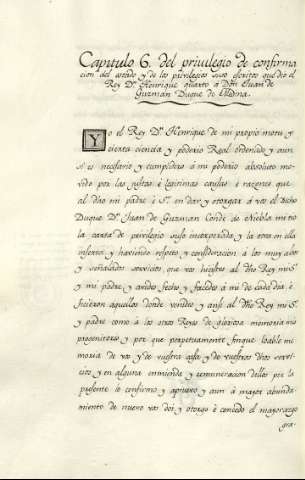 Capitulo 6. del privilegio de confirma
cion del estado y de los privilegios suso escritos que dio el
Rey Dn. Henrique quarto a Don Juan de
Guzman Duque de Medina.
Yo el Rey Dn. Henrique de mi propio motu y
cierta ciencia y poderio Real ordenado y aun
si es necesario y cumplidero a mi poderio absoluto mo-
vido por las justas è legitimas causas è razones que
al dho mi padre è Sr. en dar y otorgar à vos el dicho
Duque Dn. Juan de Guzman Conde de Niebla mi tio
la carta de privilegio suso incorporada y la otra en ella
inserta y haviendo respeto y consideracion à los muy altos
y señalados servicios que vos hicistes al dho Rey mi Sr.
y mi padre y avedes fecho y facedes à mi de cada dia è
ficieron aquellos donde venides y ansi al dho Rey mi Sr.
y padre como à los otros Reyes de gloriosa memoria mis
progenitores y por que perpetuamente finque loable me
moria de vos y de vuestra casa y de vuestros dhos servi-
cios y en alguna enmienda y remuneracion dellos por la
presente lo confirmo y apruevo y aun à mayor abunda-
miento de nuevo vos doi y otorgo è concedo el mayorazgo
gra-